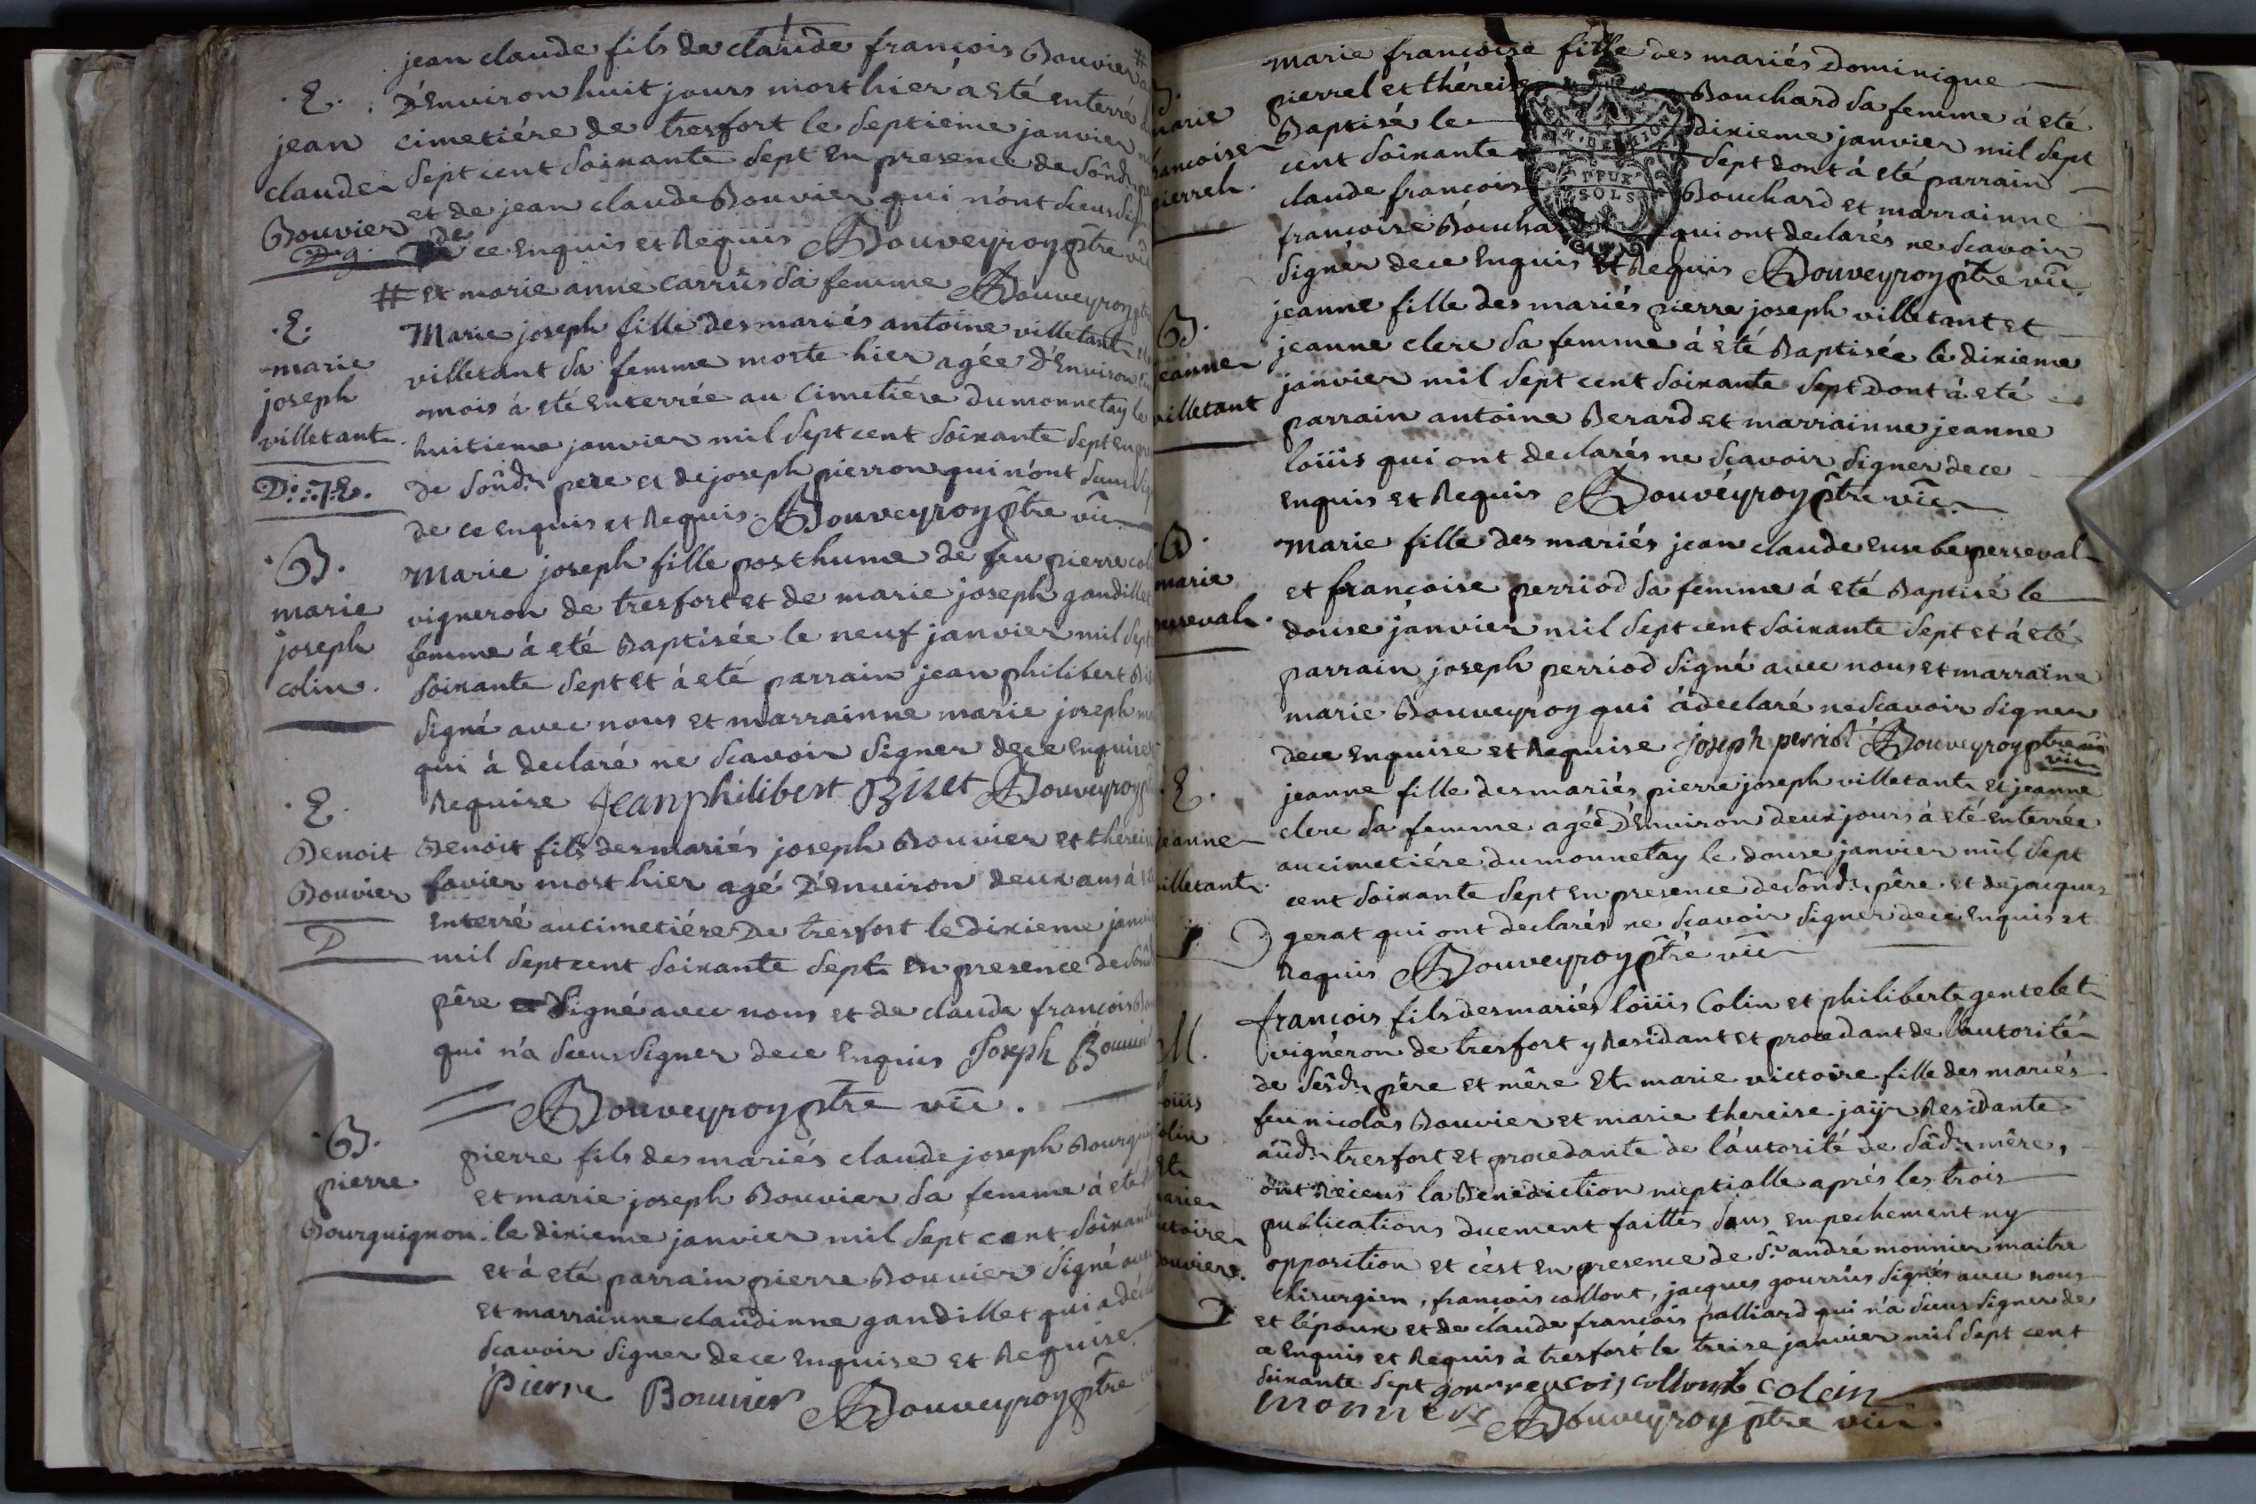 jean claude fils de claude françois Bouvier #
.E. D'Environ huit jours mort hier a eté enterré
jean cimetiére de tresfort le Septieme janvier
claude Sept cent Soixante Sept En presence de Sônd.
Bouvier et de jean claude Bouvier qui n'ont sceu
de ce Enquis et Requis Bouveyroy ptre
# Et marie anne carrüs Sa femme Bouveyroy
.E. Marie joseph fille des mariés antoine villetant
marie villetant Sa femme morte hier agée D'Environ
joseph mois á eté Enterrée au Cimetiére du monnetay le
villetant. huitieme janvier mil Sept cent Soixante Sept En
De Sônd. pere et de joseph pierron qui n'ont Sceu
de ce Enquis et Requis. Bouveyroy ptre vic
.B. Marie joseph fille posthume de feu pierre
marie vigneron de tresfort et de marie joseph gandillet
joseph femme á eté Baptisée le neuf janvier mil Sept
colin. Soixante Sept et á eté parrain jean philibert
Signé avec nous et marrainne marie joseph
qui á declaré ne Scavoir Signer de ce Enquise
Requise Jean philibert Bizet Bouveyroy
.E.
Benoit Benoit fils des mariés joseph Bouvier et thereise
Bouvier favier mort hier agé D'Environ deux ans á
D Enterré au cimetiére De tresfort le dixieme
mil Sept cent Soixante Sept En presence de
pêre Signé avec nous et de claude françois
qui n'a Sceu Signer de ce Enquis Joseph Bouvié
Bouveyroy ptre vic.
.B. pierre fils des mariés claude joseph
pierre et marie joseph Bouvier Sa femme á eté
Bourguignon. le dixieme janvier mil Sept cent Soixante
et á eté parrain pierre Bouvier Signé avec
et marrainne claudinne gandillet qui a
Scavoir Signer de ce Enquise et Requise.
Pierre Bouvier Bouveyroy ptre
Marie françoise fille des mariés Dominique
pierrel et théreise Bouchard Sa femme á eté
Baptisé le dixieme janvier mil Sept
cent Soixante Sept dont á eté parrain
DEUX
SOLS
claude françois Bouchard et marrainne
françoise Bouchard qui ont declarés ne Scavoir
Signer de ce Enquis Et Requis Bouveyroy ptre vic.
B. jeanne fille des mariés pierre joseph villetant et
jeanne clerc Sa femme á Eté Baptisée le dixieme
janvier mil Sept cent Soixante Sept Dont á eté
villetant parrain antoine Berard et marrainne jeanne
loüis qui ont declarés ne Scavoir Signer de ce
Enquis et Requis Bouveyroy ptre vic.
B. Marie fille des mariés jean claude Eusebe perseval
marie et françoise perriod Sa femme á eté Baptisé le
douse janvier mil Sept cent Soixante Sept et á eté
parrain joseph perriod Signé avec nous et marraine
marie Bouveyroy qui á declaré ne Scavoir Signer
de ce Enquise et Requise joseph perriot Bouveyroy ptre
vic
E. jeanne fille des mariés pierre joseph villetant et jeanne
clerc Sa femme agée D'Environ deux jours á eté Enterrée
au cimetiére du monnetay le douse janvier mil Sept
cent Soixante Sept En presence de Sônd. pêre et de jacques
gerat qui ont declarés ne Scavoir Signer de ce Enquis et
Requis Bouveyroy ptre vic
M. françois fils des mariés loüis Colin et philiberte gentelet
vigneron de tresfort y Residant et procedant de l'autorité
de Sesd. pêre et mêre Et marie victoire fille des mariés
feu nicolas Bouvier et marie thereise jaÿr Residante
aûd. tresfort et procedante de l'autorité de Sâd. mêre,
ont Receus la Benediction nuptialle aprés les trois
publications duement faittes Sans Empechement ny
opposition et c'est En presence de Sr. andré monnier maitre
chirurgien, françois collont, jacques gourrüs Signés avec nous
et l'époux et de claude françois palliard qui n'a Sceu Signer de
ce Enquis et Requis á tresfort le treise janvier mil Sept cent
Soixante Sept collont colein
monnier Bouveyroy ptre vic.